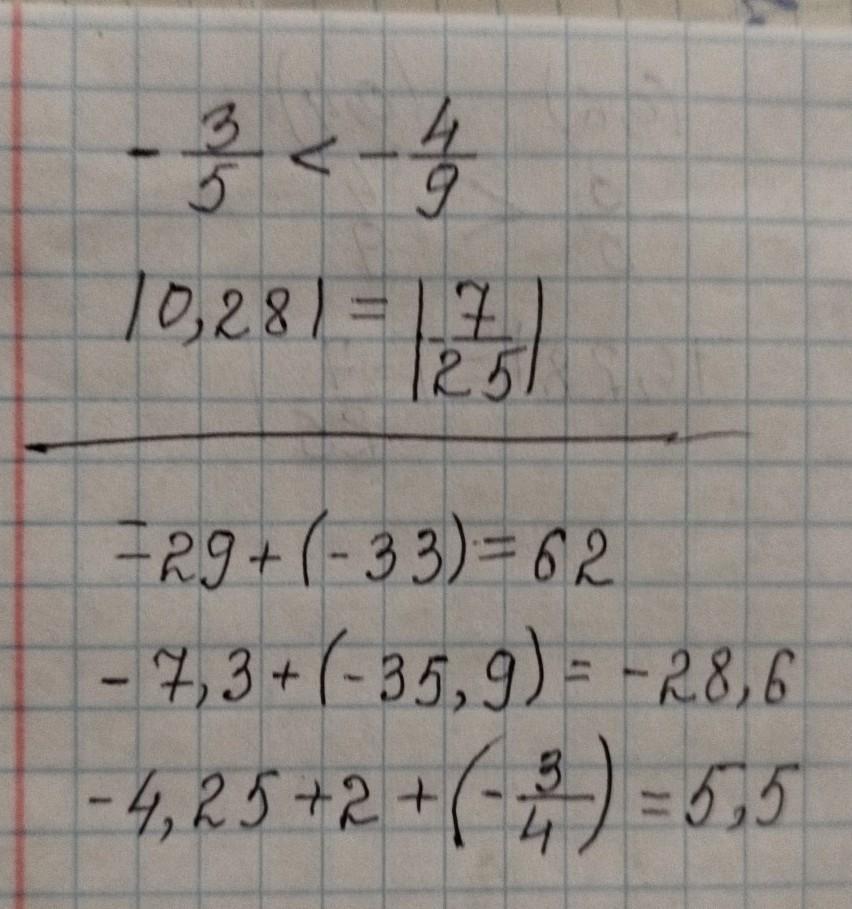 -3/5 < -4/9
|0,28| = |-7/25|
-29 + (-33) = 62
-7,3 + (-35,9) = -28,6
-4,25 + 2 + (-3/4) = 5,5